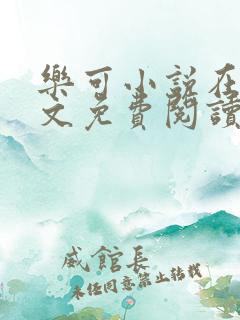 樂可小說在
文免費閱讀
威館長
未经同意禁止转载